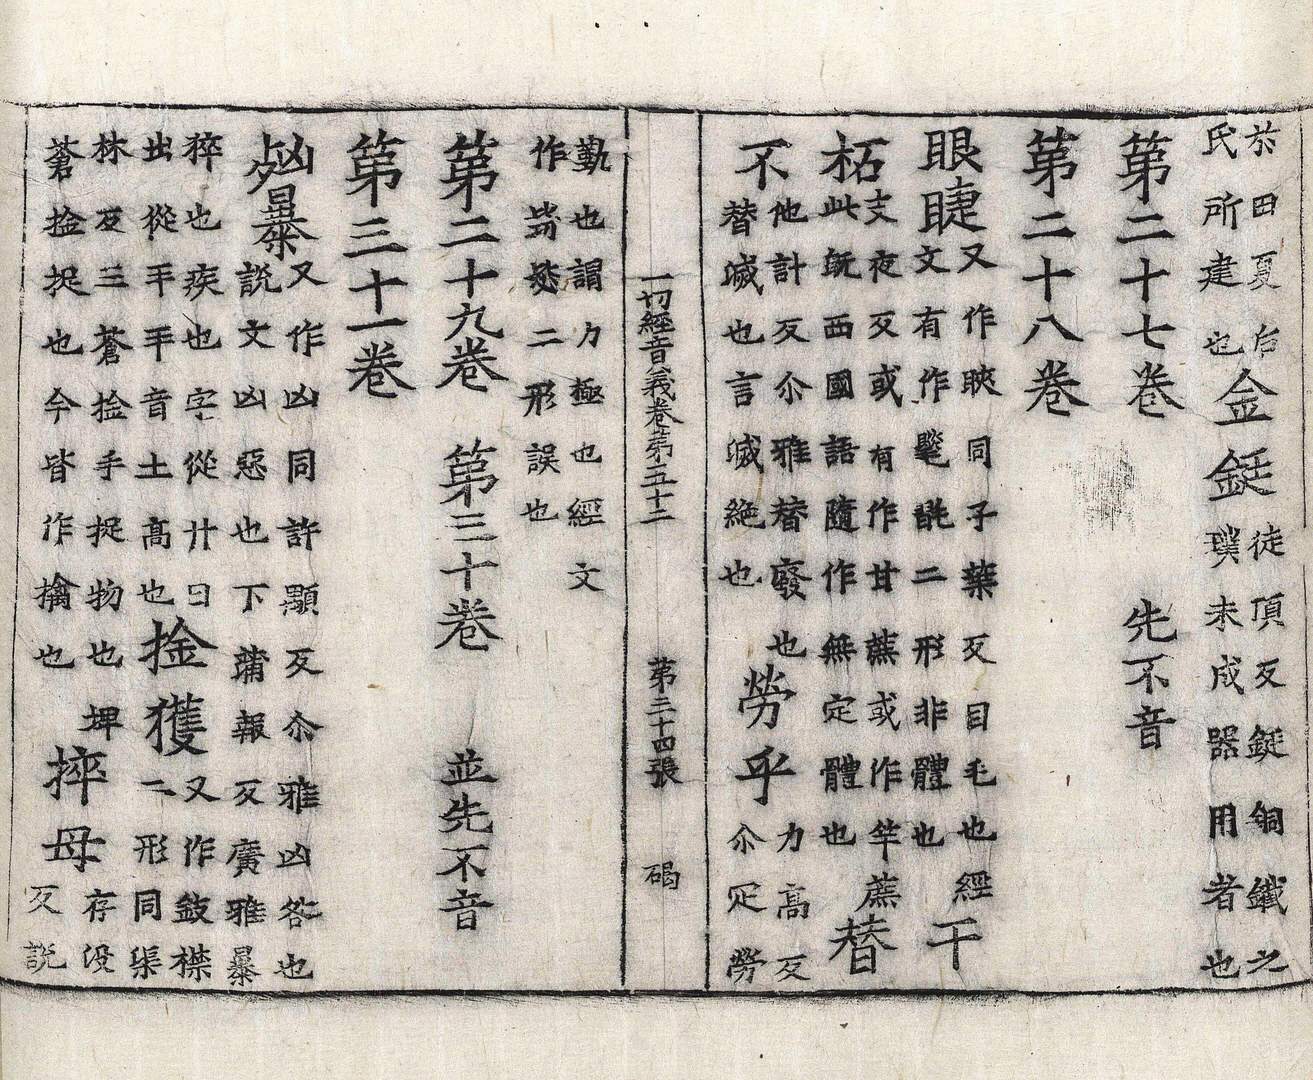 扵田夏后
氏所建也
金鋌
徒頂反鋌銅鐵之
璞未成器用者也
第二十七卷 先不音
第二十八卷
眼睫
又作䀹同子葉反目毛也經
文有作㲠毦二形非體也
干柘
支夜反或有作甘蔗或作竿蔗
此旣西國語隨作無定體也
替不
他計反尒雅替廢也
替滅也言滅絶也
勞乎
力高反
尒疋勞
一切經音義卷第五十二 第三十四張 碣
勤也謂力極也經文
作𡴥㥛二形誤也
第二十九卷 第三十卷 並先不音
第三十一卷
㐫暴
又作凶同許顒反尒雅凶咎也
說文凶惡也下蒲報反廣雅暴
猝也疾也字從廾曰
出從半半音土高也
捦獲
又作㩒襟
二形同渠
林反三蒼捦手捉物也埤
蒼捦捉也今皆作擒也
捽母
存没
反說